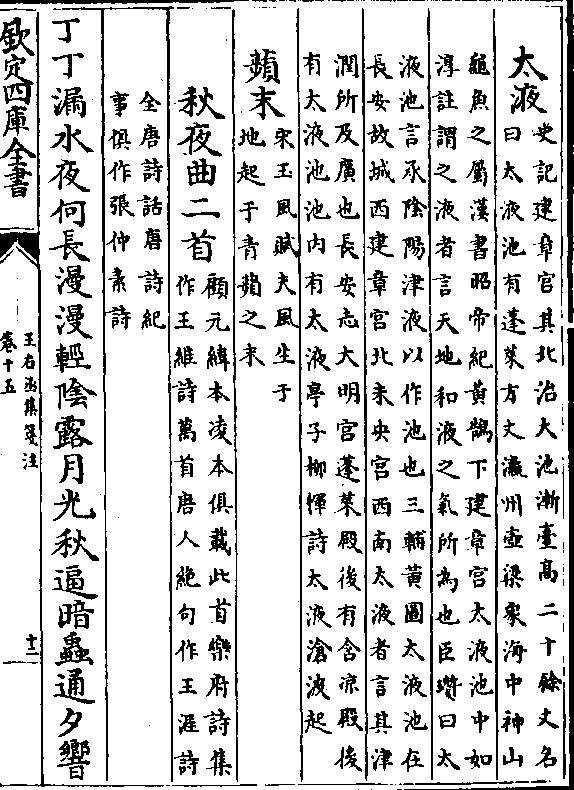 太液史記建章宮其北治大池漸臺高二十餘丈名
曰太液池有蓬萊方丈瀛州壺梁象海中神山
龜魚之屬漢書昭帝紀黃鵠下建章宮太液池中如
淳註謂之液者言天地和液之氣所為也臣瓚曰太
液池言承陰陽津液以作池也三輔黃圖太液池在
長安故城西建章宮北未央宮西南太液者言其津
潤所及廣也長安志大明宮蓬萊殿後有含凉殿後
有太液池池內有太液亭子柳惲詩太液滄波起
蘋末宋玉風賦夫風生于
地起于青蘋之末
秋夜曲二首顧元緯本凌本俱載此首樂府詩集
作王維詩萬首唐人絶句作王涯詩
全唐詩話唐詩紀
事俱作張仲素詩
丁丁漏水夜何長漫漫輕陰露月光秋逼暗蟲通夕響
欽定四庫全書
王右丞集箋注
卷十五
十二